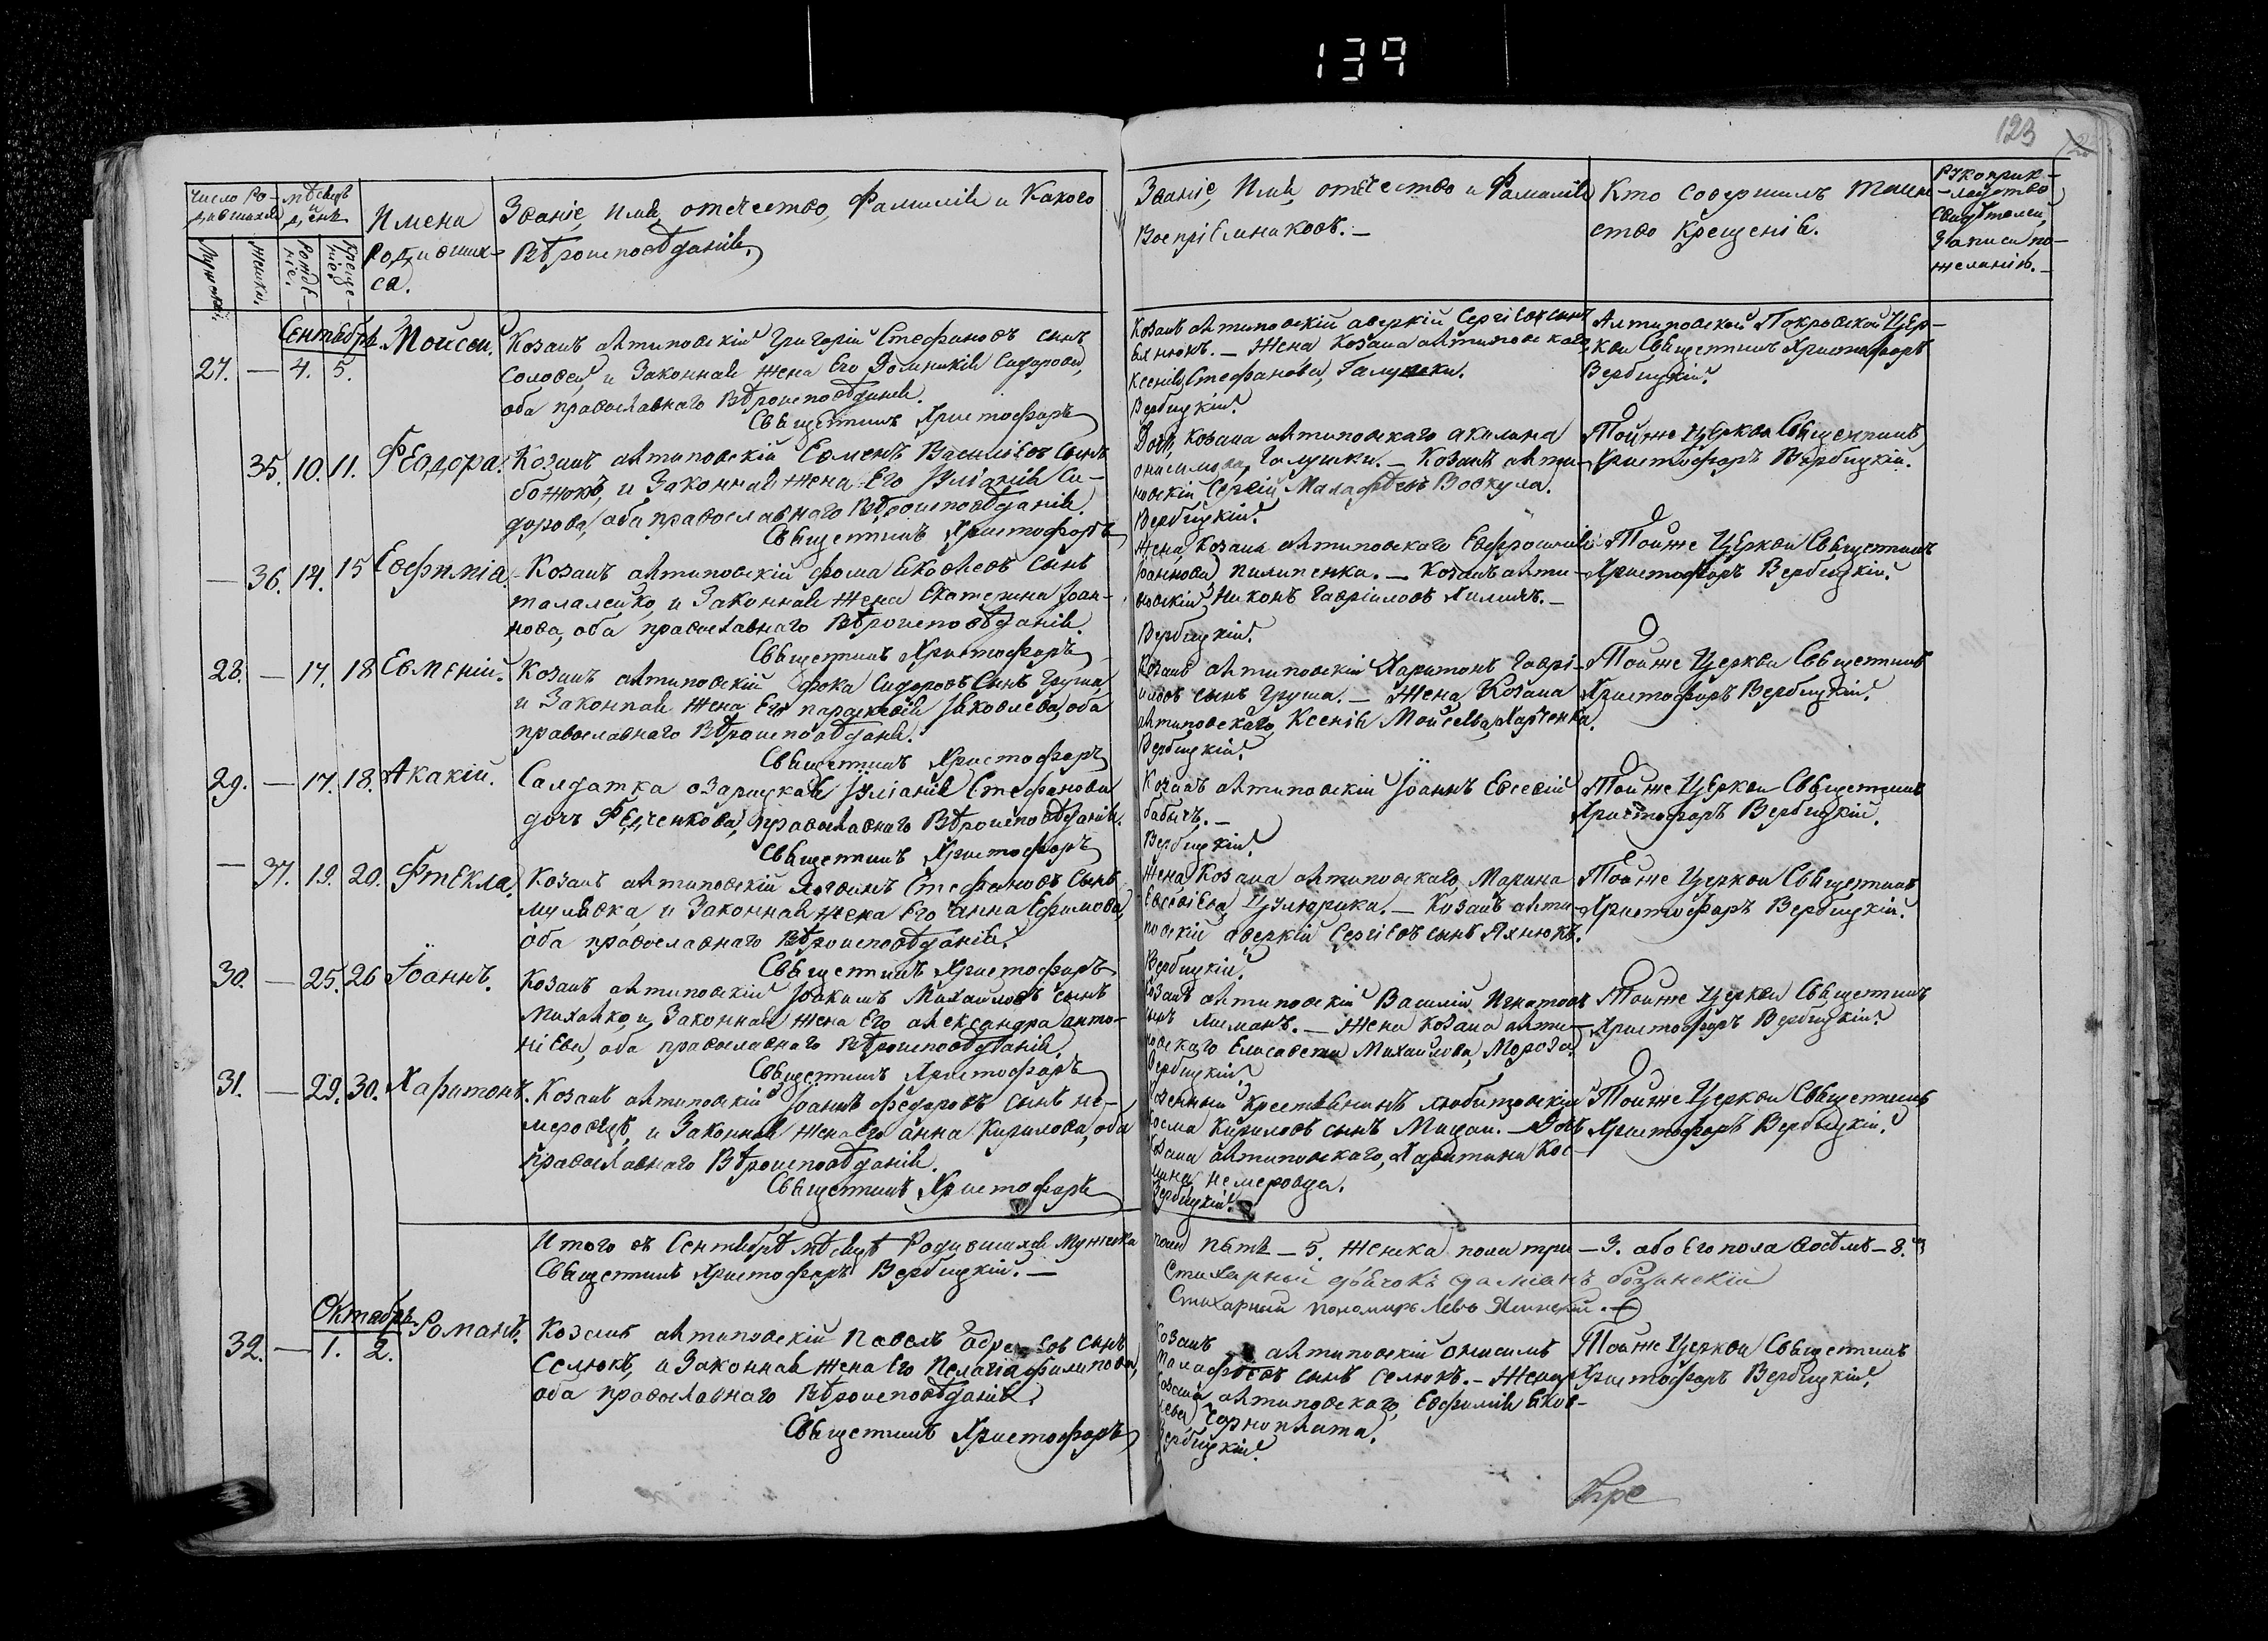 139
123
Число Ро-
дившихся
Мѣсяцъ
и
день
Мужеск:
Женск.
Рожде-
ніе.
Креще-
ніе
Имена
Родивших-
ся.
Званіе, Имя, отечество, Фамилія и Какого
Вѣроисповѣданія.
Званіе, Имя, отечество и Фамилія
Воспріемниковъ. —
Кто Совершилъ Таин-
ство Крещенія.
Рукоприк-
ладство
Свидѣтелей
Записи по-
желанію. —
Сентябрь
27. — 4. 5. Моисей.
Козакъ алтиновскій Григорій Стефановъ сынъ
Соловей, и Законная жена Его Домникія Сидорова,
оба православнаго Вѣроисповѣданія.
Священникъ Христофоръ
Козакъ алтиновскій аверкій Сергіевъ сынъ
Янюкъ. — Жена Козака алтиновскаго
Ксенія Стефанова, Галушки.
Вербицкій.
Алтиновской Покровской Цер-
кви Священникъ Христофоръ
Вербицкій.
35. 10. 11. Феодора.
Козакъ алтиновскій Евменъ Василіевъ Сынъ
божокъ, и Законная жена Его Іуліанія Си-
дорова, оба православнаго Вѣроисповѣданія.
Священникъ Христофоръ
Дочь Козака алтиновскаго акилина
онисимова, Галушки. — Козакъ алти-
новскій Сергій Малафѣевъ Воскула.
Вербицкій.
Тойже Церкви Священникъ
Христофоръ Вербицкій.
— 36. 14. 15 Евфимія.
Козакъ алтиновскій фома Яковлевъ Сынъ
талалейко, и Законная Жена Екатерина Іоан-
нова, оба православнаго Вѣроисповѣданія.
Священникъ Христофоръ
Жена Козака алтиновскаго Евфросинія
Іоаннова Пилипенка. — Козакъ алти-
новскій Никонъ Гавріиловъ Химичъ. —
Вербицкій.
Тойже Церкви Священникъ
Христофоръ Вербицкій.
28. — 17. 18 Евменій.
Козакъ алтиновскій фока Сидоровъ Сынъ Груша,
и Законная Жена Его параскевія Іяковлева, оба
православнаго Вѣроисповѣданія.
Священникъ Христофоръ
Козакъ алтиновскій Харитонъ Гаврі-
иловъ сынъ Груша. — Жена Козака
алтиновскаго, Ксенія Мойсеева, Харченка.
Вербицкій.
Тойже Церкви Священникъ
Христофоръ Вербицкій.
29. — 17. 18. Акакій.
Салдатка озарицкая Іуліанія Стефанова
дочъ Федченкова, православнаго Вѣроисповѣданія.
Священникъ Христофоръ
Козакъ алтиновскій Іоаннъ Евсевій
бабичъ. —
Вербицкій.
Тойже Церкви Священникъ
Христофоръ Вербицкій.
— 37. 19. 20. Фтекла.
Козакъ алтиновскій Логвинъ Стефановъ Сынъ
мулявка и Законная жена Его анна Ефимова,
оба православнаго Вѣроисповѣданія.
Священникъ Христофоръ
Жена Козака алтиновскаго, Марина
Евсевіева, Цулюрика. — Козакъ алти-
новскій аверкій Сергіевъ сынъ Янюкъ.
Вербицкій.
Тойже Церкви Священникъ
Христофоръ Вербицкій.
30. — 25. 26 Іоаннъ.
Козакъ алтиновскій Іоакимъ Михайловъ сынъ
Михалко, и Законная жена Его александра анто-
ніева, оба православнаго Вѣроисповѣданія.
Священникъ Христофоръ
Козакъ алтиновскій Василій Игнатовъ
сынъ Лисманъ. — Жена Козака алти-
новскаго Елисавета Михайлова, Мороза.
Вербицкій.
Тойже Церкви Священникъ
Христофоръ Вербицкій.
31. — 29. 30. Харитонъ.
Козакъ алтиновскій Іоаннъ федоровъ сынъ не-
меровецъ, и Законная жена Его анна Кирилова, оба
православнаго Вѣроисповѣданія.
Священникъ Христофоръ
Козенный Крестьянинъ любитовскій
Косма Кириловъ сынъ Мицай. — Дочь
Козака алтиновскаго, Харитина Кос-
мина немеровца.
Вербицкій.
Тойже Церкви Священникъ
Христофоръ Вербицкій.
Итого въ Сентябрѣ мѣсяцѣ Родившихся Мужеска
пола пять — 5. Женска пола три — 3. обоего пола Восѣмъ — 8.
Священникъ Христофоръ Вербицкій. —
Стихарный дьячокъ даміанъ
Стихарный пономарь Левъ
Октябрь
32. — 1. 2. Романъ.
Козакъ алтиновскій Павелъ сынъ
Селюкъ, и Законная жена Его Пелагія филипова,
оба православнаго Вѣроисповѣданія.
Священникъ Христофоръ
Козакъ алтиновскій онисимъ
Малафѣевъ сынъ Селюкъ. — Жена
Козака алтиновскаго, Евфимія Яков-
лева Чорноплата.
Вербицкій.
Тойже Церкви Священникъ
Христофоръ Вербицкій.
Хре